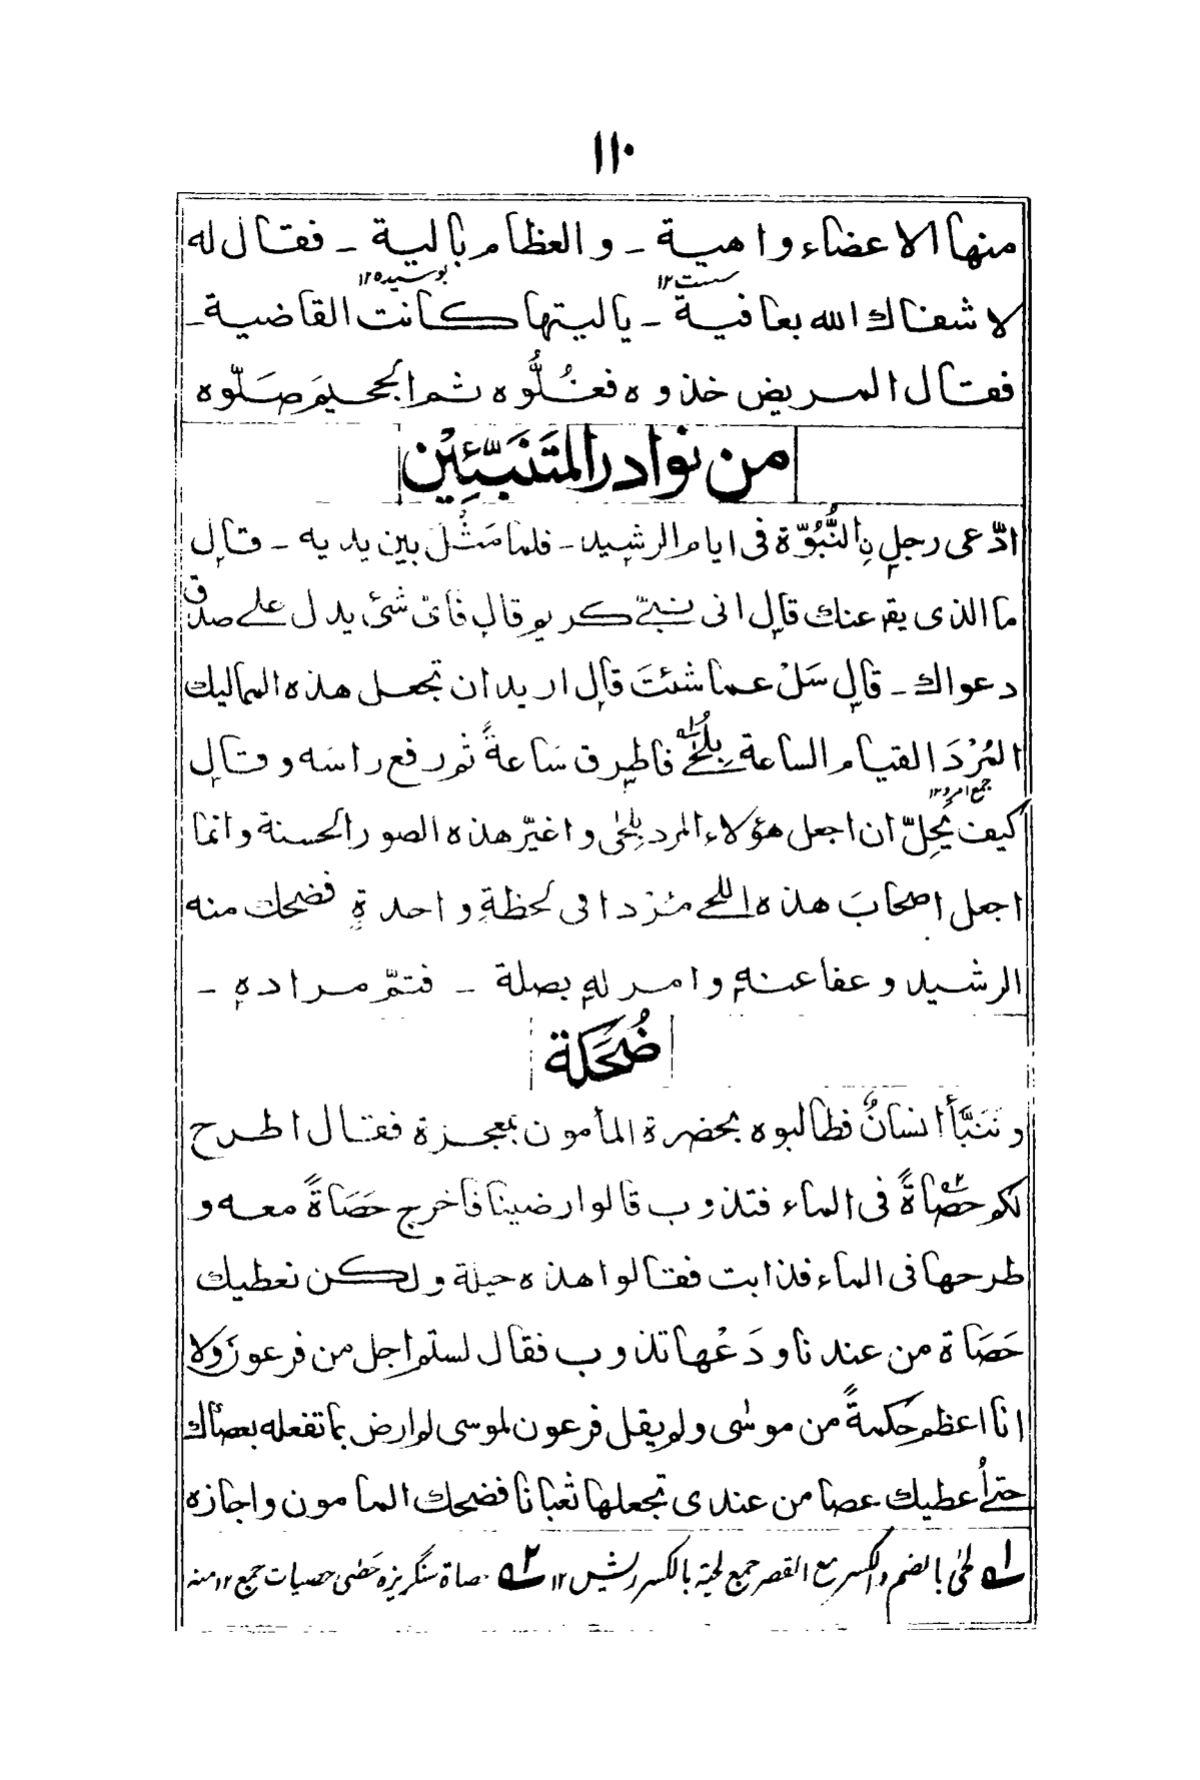 ١١٠
منها الاعضاء واهية ـ والعظام بالية ـ فقال له
سست١٢ بوسیده١٢
لا شفاك الله بعافية ـ ياليتها كانت القاضية ـ
فقال المريض خذوه فغُلُّوه ثم الجحيمَ صَلّوه
من نوادر المتَنَبِّئِيْن
ادّعى رجلٌ نِ النُّبُوّة فى ايام الرشيد ـ فلما مَثُلَ بين يديه ـ قال
ما الذى يقع عنك قال انى نبىّ كريم قال فاىّ شئ يدل على صدق
دعواك ـ قال سَلْ عما شئتَ قال اريد ان تجعل هذه المماليك
المُرْدَ القيام الساعة بِلُحىٰ فاطرق سَاعةً ثم رفع راسَه وقال
جمع امرد١٢
كيف يَحِلّ ان اجعل هؤلاء المرد بِلحىٰ واغيّر هذه الصور الحسنة وانما
اجعل اصحابَ هذه اللحى مُرْدا فى لحظةٍ واحدةٍ فضحك منه
الرشيد وعفا عنه وامر له بصلة ـ فتمّ مراده ـ
ضُحَكَة
وتَنَبَّأَ انسانٌ فطالبوه بحضرة المأمون بمعجزة فقال اطرح
لكم حصاةً فى الماء فتذوب قالوا رضينا فاخرج حَصَاةً معه و
طرحها فى الماء فذابت فقالوا هذه حيلة ولكن نعطيك
حَصَاة من عندنا ودَعْها تذوب فقال لستم اجل من فرعون وَلا
انا اعظم حكمةً من موسٰى ولم يقل فرعون لموسى لم ارض بما تفعله بعصاك
حتى أُعطيك عصا من عندى تجعلها ثعبانا فضحك المامون واجازه
١؎ لحىٰ بالضم والكسر مع القصر جمع لحیة بالكسر ریش١٢ ٢؎ حصاة سنگریزه حَصٰى حصیات جمع١٢منه